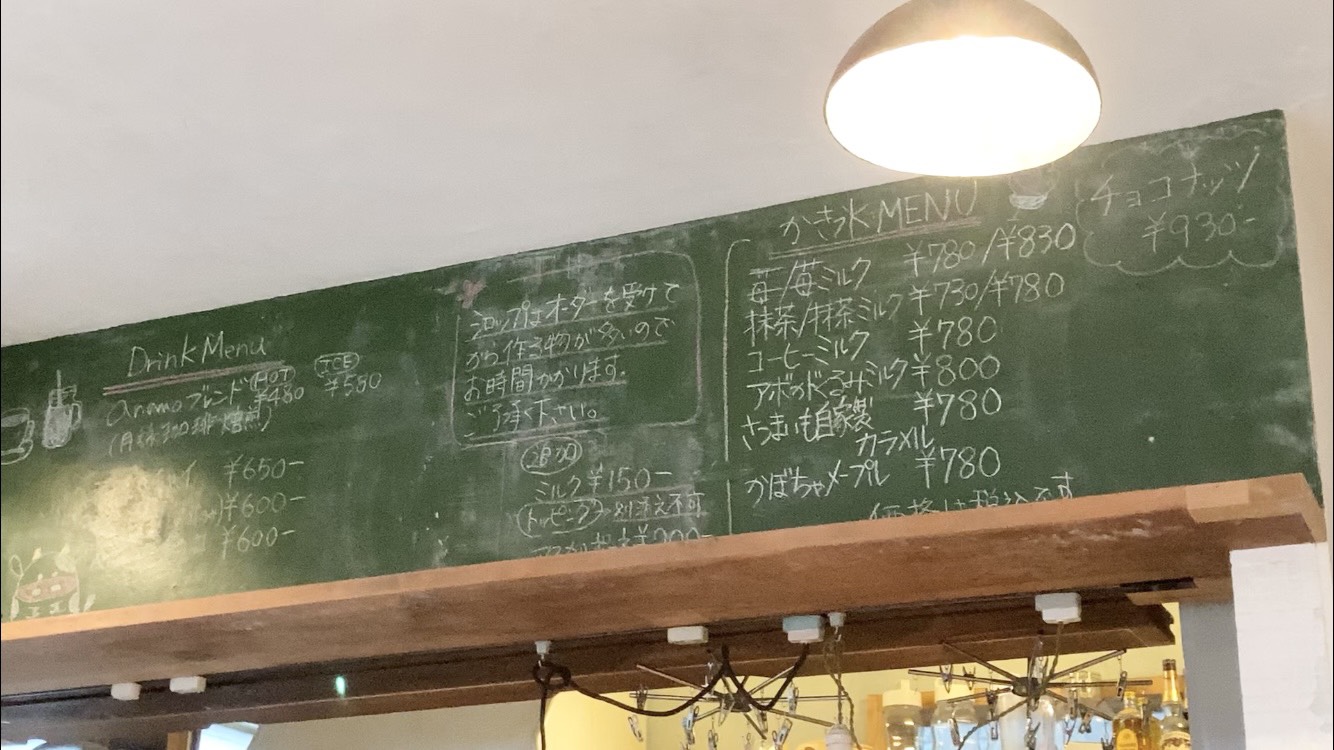 Drink Menu
HOT ICE
ananoブレンド ¥480 ¥580
¥650-
¥600-
¥600-
シロップはオーダーを受けて
から作る物が多いので
お時間かかります。
ご了承下さい。
追加
ミルク ¥150-
トッピング 別添え不可
かき氷MENU
苺/苺ミルク ¥780/¥830
抹茶/抹茶ミルク ¥730/¥780
コーヒーミルク ¥780
アボカドくるみミルク ¥800
さつまいも自家製 ¥780
カラメル
かぼちゃメープル ¥780
価格は税込です
チョコナッツ
¥930-